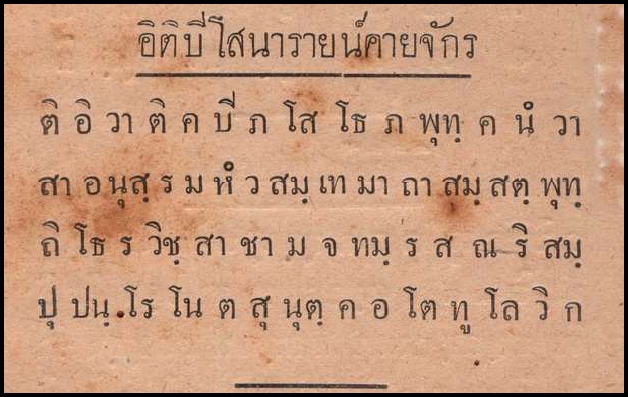 อิติปิโสนารายน์คายจักร
ติ อิ วา ติ ค ปิ ภ โส โธ ภ พุทฺ ค นํ วา
สา อ นุสฺ ร ม หํ ว สมฺ เท มา ถา สมฺ สตฺ พุทฺ
ถิ โธ ร วิชฺ สา ชา ม จ ทมฺ ร ส ณ ริ สมฺ
ปุ ปนฺ โร โน ต สุ นุตฺ ค อ โต ทู โล วิ ก